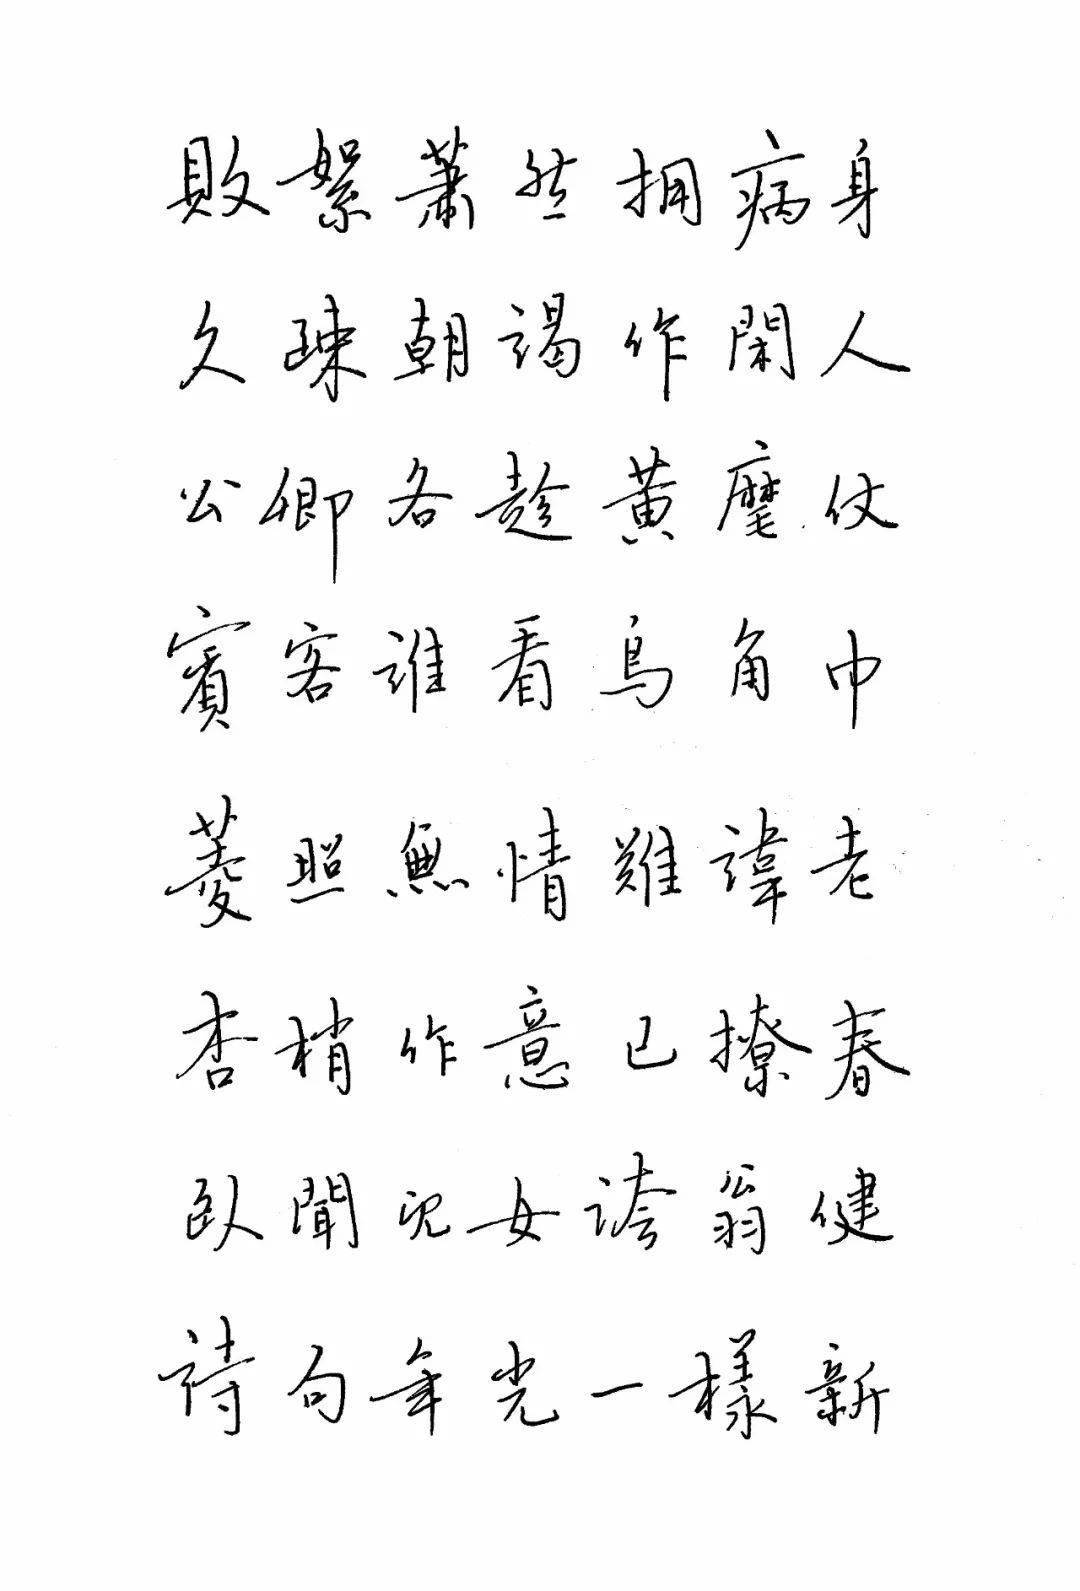 敗絮蕭然擁病身
久疎朝謁作閑人
公卿各趁黃麾仗
賓客誰看烏角巾
菱照無情難諱老
杏梢作意已撩春
臥聞兒女誇翁健
詩句年光一樣新